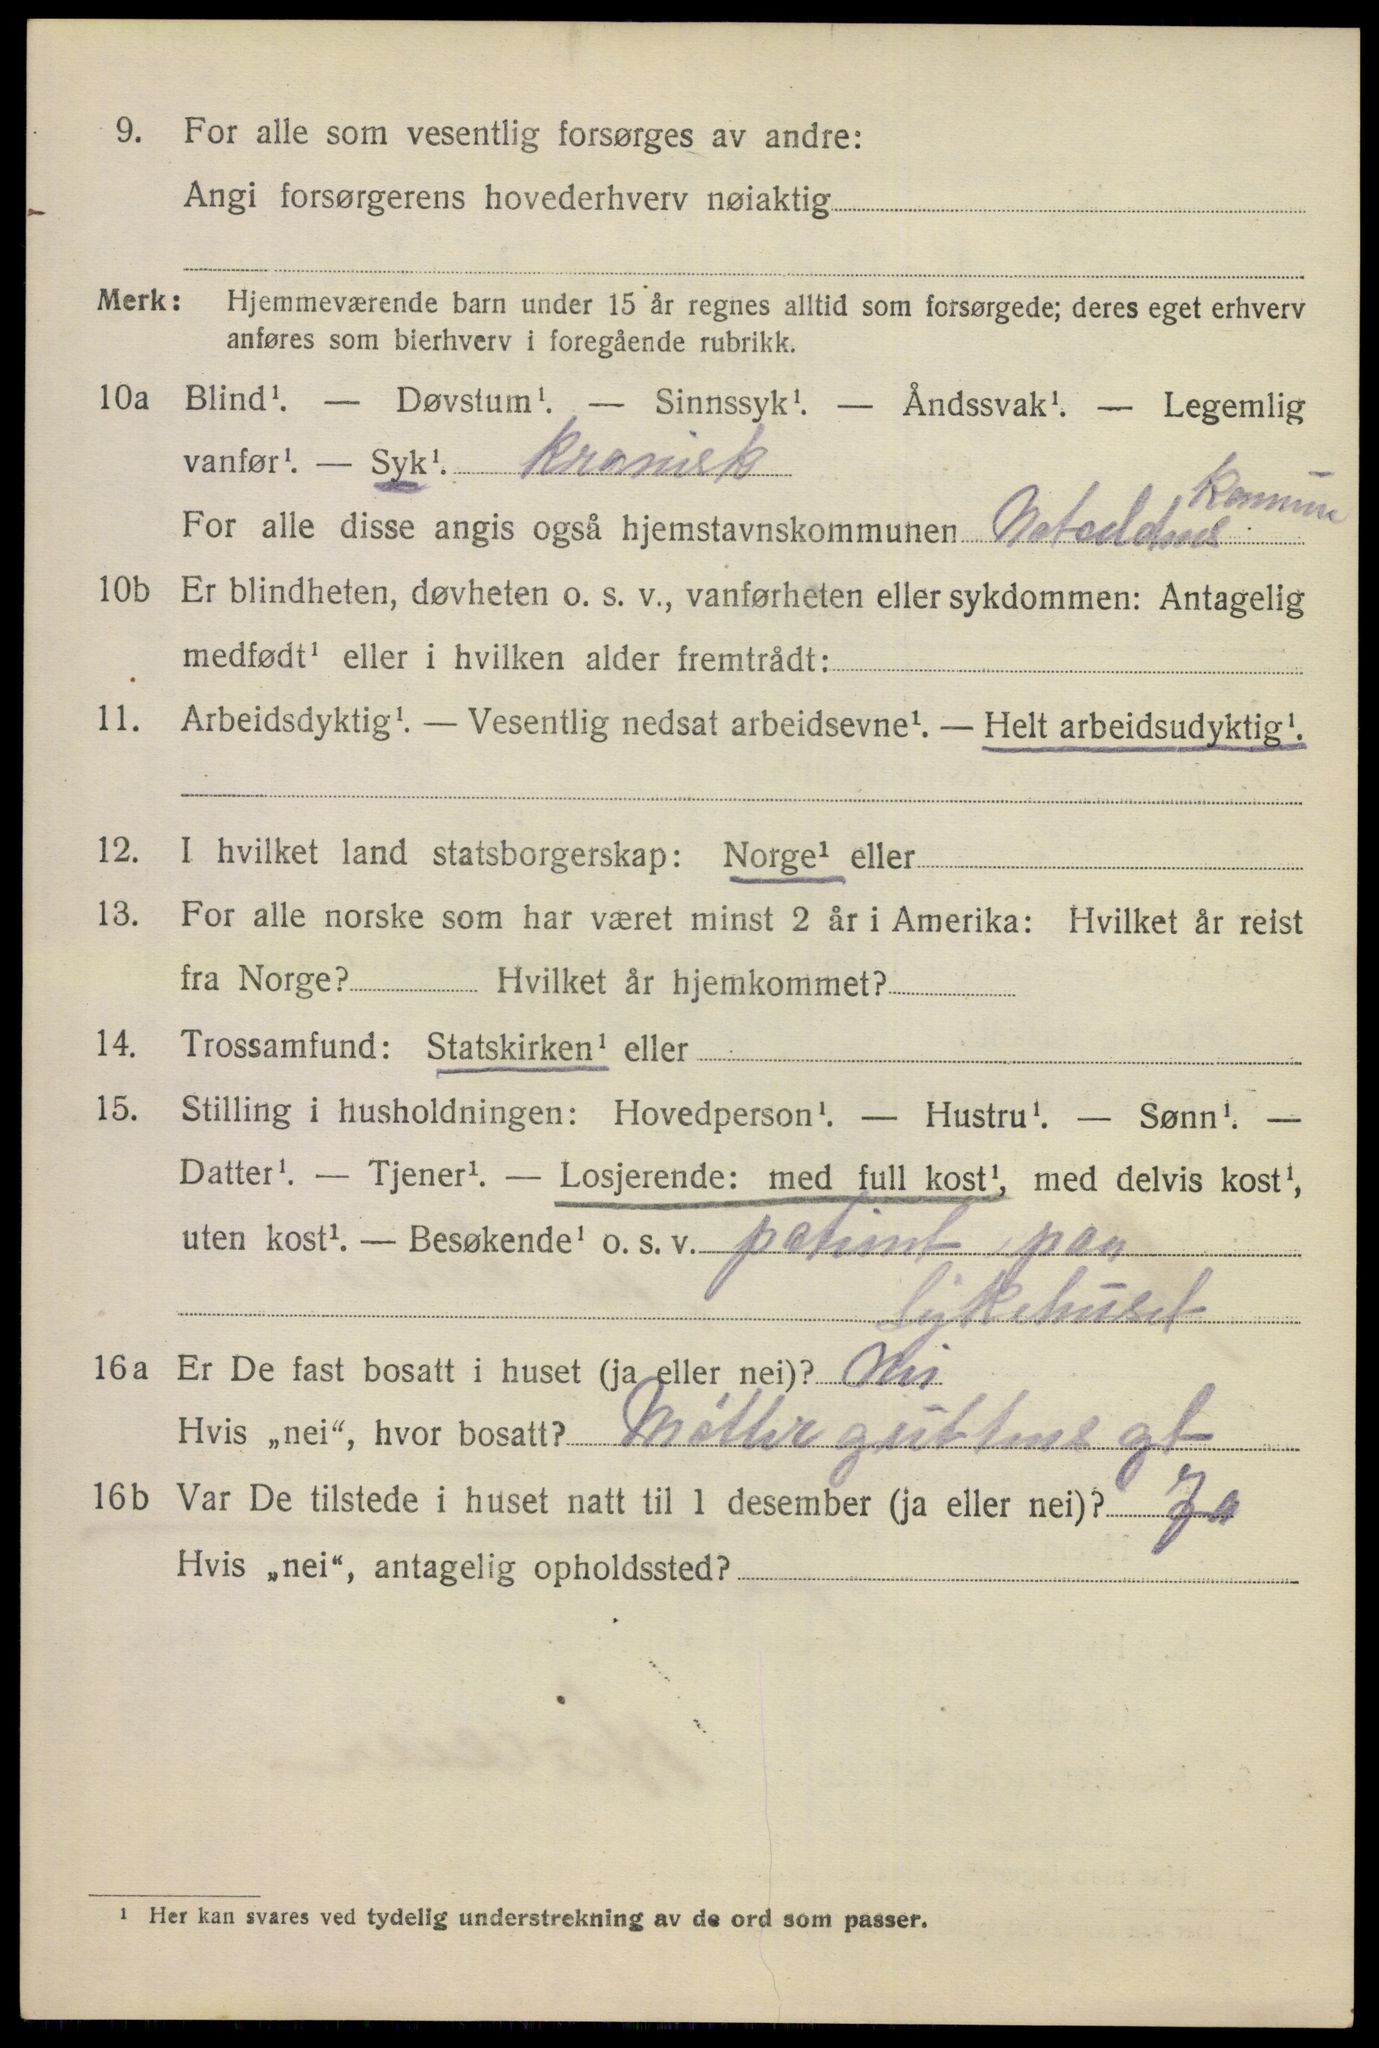 9. For alle som vesentlig forsørges av andre:
Angi forsørgerens hovederhverv nøiaktig
Merk: Hjemmeværende barn under 15 år regnes alltid som forsørgede; deres eget erhverv
anføres som bierhverv i foregående rubrikk.
10a Blind¹. — Døvstum¹. — Sinnssyk¹. — Åndssvak¹. — Legemlig
vanfør¹. — Syk¹. kronisk
komune
For alle disse angis også hjemstavnskommunen
10b Er blindheten, døvheten o. s. v., vanførheten eller sykdommen: Antagelig
medfødt¹ eller i hvilken alder fremtrådt:
11. Arbeidsdyktig¹. — Vesentlig nedsat arbeidsevne¹. — Helt arbeidsudyktig¹.
12. I hvilket land statsborgerskap: Norge¹ eller
13. For alle norske som har været minst 2 år i Amerika: Hvilket år reist
fra Norge? Hvilket år hjemkommet?
14. Trossamfund: Statskirken¹ eller
15. Stilling i husholdningen: Hovedperson¹. — Hustru¹. — Sønn¹. —
Datter¹. — Tjener¹. — Losjerende: med full kost¹, med delvis kost¹,
uten kost¹. — Besøkende¹ o. s. v. patient paa
Sykehuset
16a Er De fast bosatt i huset (ja eller nei)? Nei
Hvis „nei“, hvor bosatt? gt
16b Var De tilstede i huset natt til 1 desember (ja eller nei)? Ja
Hvis „nei“, antagelig opholdssted?
¹ Her kan svares ved tydelig understrekning av de ord som passer.